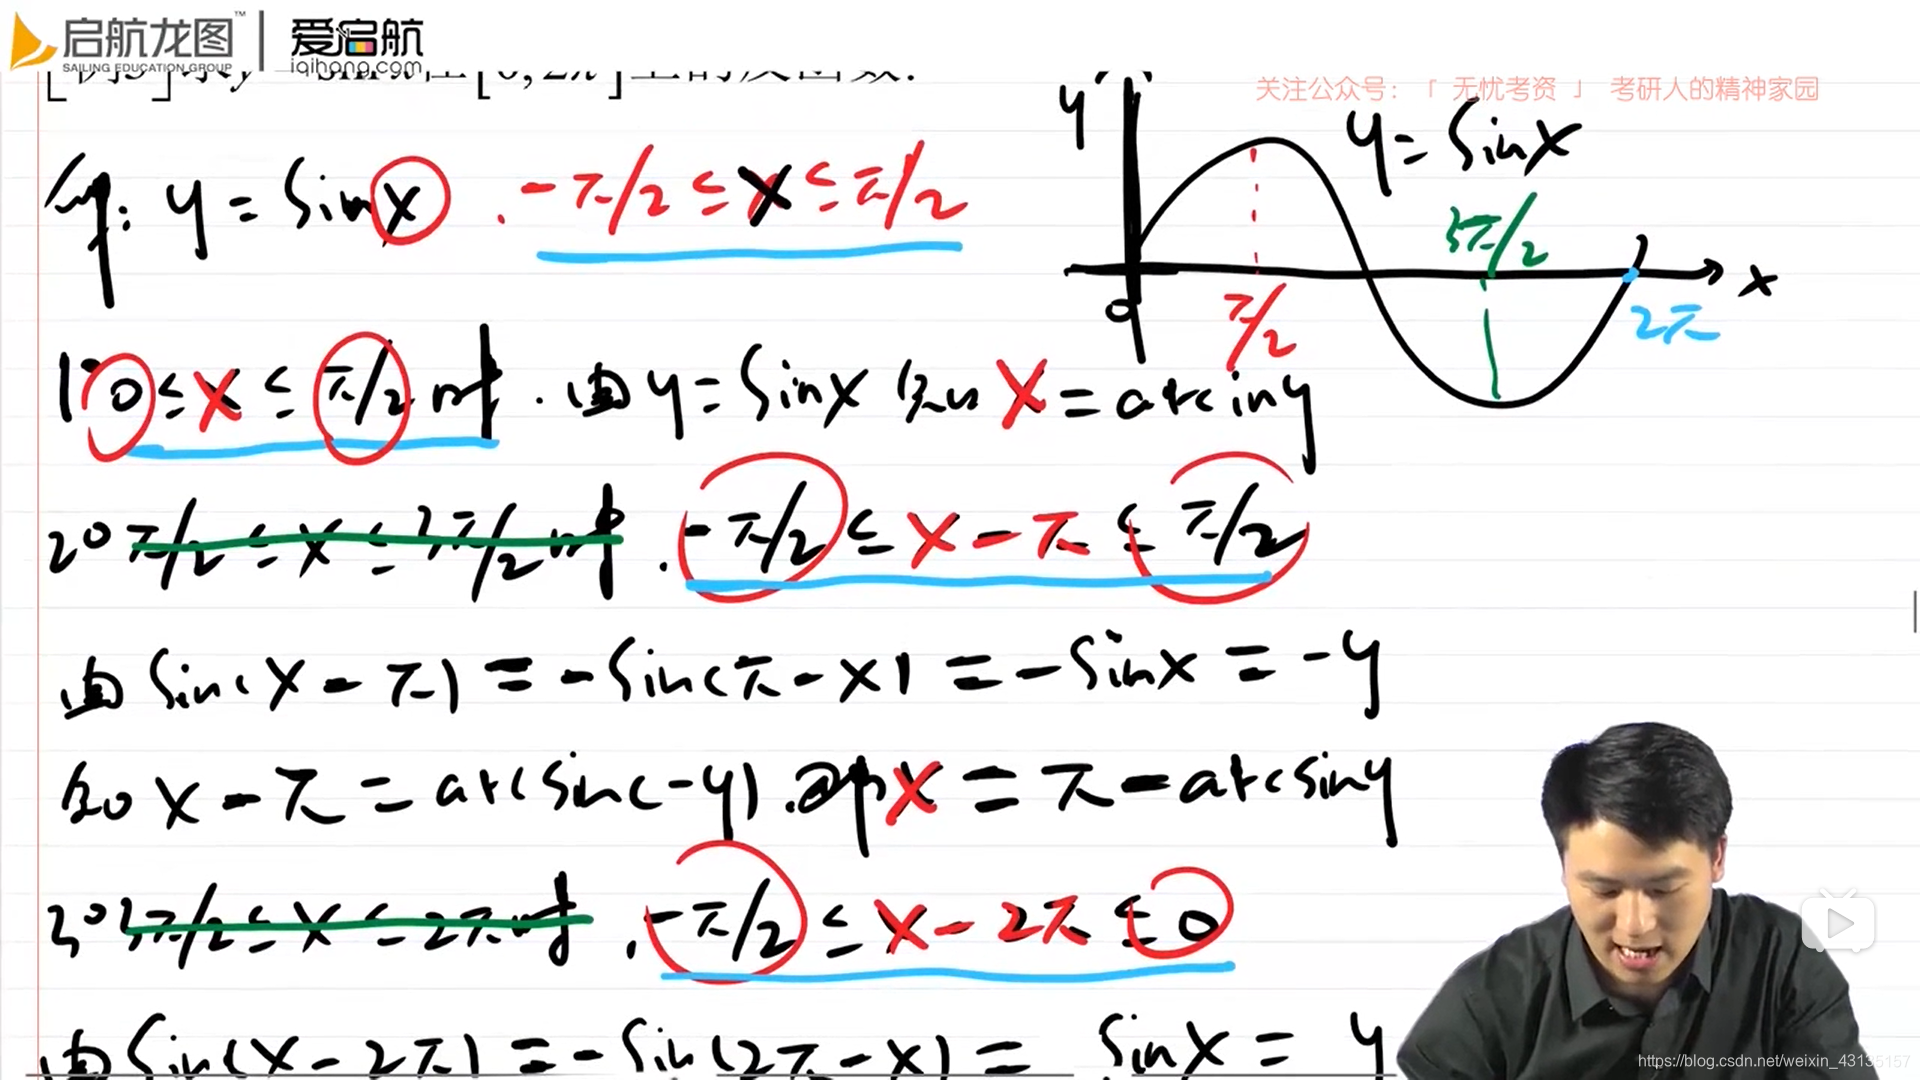 启航龙图™ | 爱启航
SAILING EDUCATION GROUP iqihang.com
y = sin x 在[0, 2π]上的反函数.
关注公众号:「 无忧考资 」 考研人的精神家园
解: y = sinx . -π/2 ≤ x ≤ π/2
y
y = sinx
3π/2
0
π/2
2π
x
1° 0 ≤ x ≤ π/2 时. 由 y = sinx 知 x = arciny
2° π/2 ≤ x ≤ 3π/2 时. -π/2 ≤ x - π ≤ π/2
由 sin(x - π) = -sin(π - x) = -sinx = -y
知 x - π = arcsin(-y). 即 x = π - arcsiny
3° 3π/2 ≤ x ≤ 2π 时. -π/2 ≤ x - 2π ≤ 0
由 sin(x - 2π) = -sin(2π - x) = sinx = y
https://blog.csdn.net/weixin_43135157